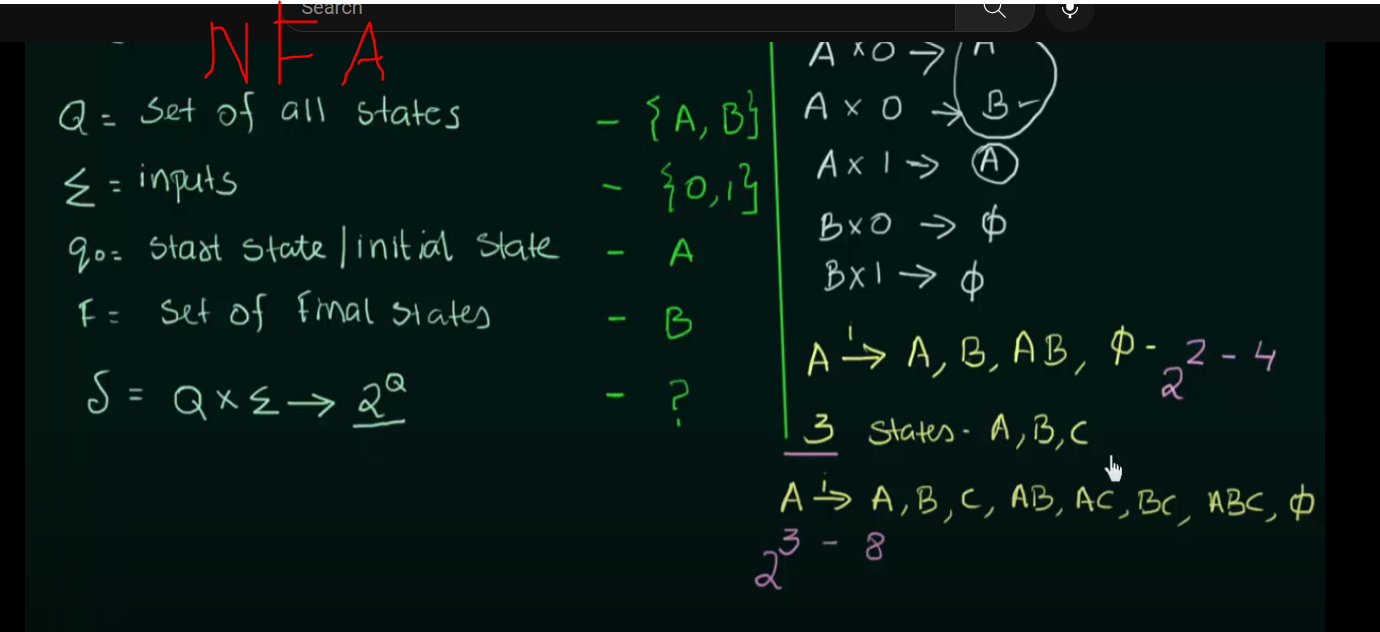 Search
NFA
Q = Set of all states - {A, B}
Σ = inputs - {0,1}
q0 = Start state/initial state - A
F = Set of Final states - B
δ = Q × Σ → 2^Q - ?
A × 0 → A
A × 0 → B
A × 1 → A
B × 0 → ϕ
B × 1 → ϕ
A i→ A, B, AB, ϕ - 2^2 - 4
3 States - A, B, C
A i→ A, B, C, AB, AC, BC, ABC, ϕ
2^3 - 8